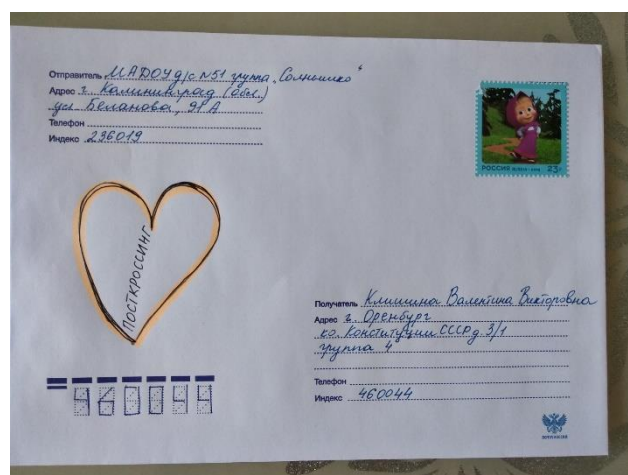 Отправитель МАДОУ д/с N51 группа "Солнышко"
Адрес г. Калининград (обл.)
ул. Беланова, 91 А
Телефон
Индекс 236019
РОССИЯ 23
ПОСТКРОССИНГ
Получатель Климина Валентина Викторовна
Адрес г. Оренбург
Конституции СССР д 3/1
группа 4
Телефон
Индекс 460044
460044
ПОЧТА РОССИИ